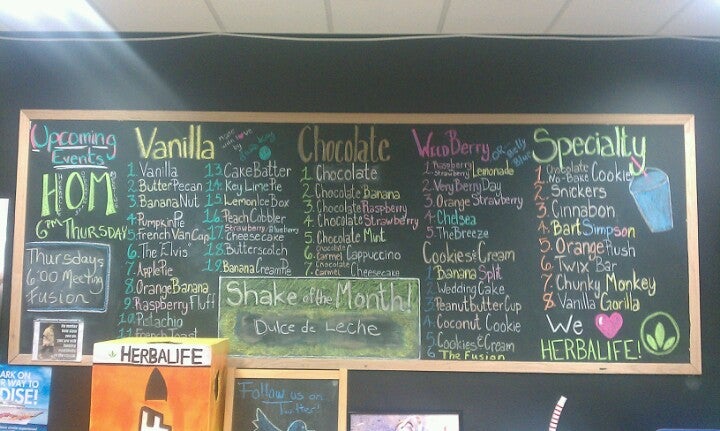 Upcoming
Events
HOM
6PM THURSDAY
Thursdays
6:00 Meeting
Fusion
Vanilla
made
with love
by
1. Vanilla
2. Butter Pecan
3. Banana Nut
4. Pumpkin Pie
5. French Van Cap
6. The "Elvis"
7. Apple Pie
8. Orange Banana
9. Raspberry Fluff
10. Pistachio
11. French Toast
13. Cake Batter
14. Key Lime Pie
15. Lemon Ice Box
16. Peach Cobbler
17. Strawberry/Blueberry
Cheesecake
18. Butterscotch
19. Banana Creme Pie
Chocolate
1. Chocolate
2. Chocolate Banana
3. Chocolate Raspberry
4. Chocolate Strawberry
5. Chocolate Mint
6. Chocolate
Carmel Cappuccino
7. Chocolate
Carmel Cheesecake
Shake of the Month!
Dulce de Leche
Wild Berry
OR Really
Blue!
1. Raspberry
Strawberry Lemonade
2. Very Berry Day
3. Orange Strawberry
4. Chelsea
5. The Breeze
Cookies & Cream
1. Banana Split
2. Wedding Cake
3. Peanut butter Cup
4. Coconut Cookie
5. Cookies & Cream
6 The Fusion
Specialty
1. Chocolate
No-Bake Cookie
2. Snickers
3. Cinnabon
4. Bart Simpson
5. Orange Rush
6. Twix Bar
7. Chunky Monkey
8. Vanilla Gorilla
We
HERBALIFE!
HERBALIFE
Follow us on
Twitter!